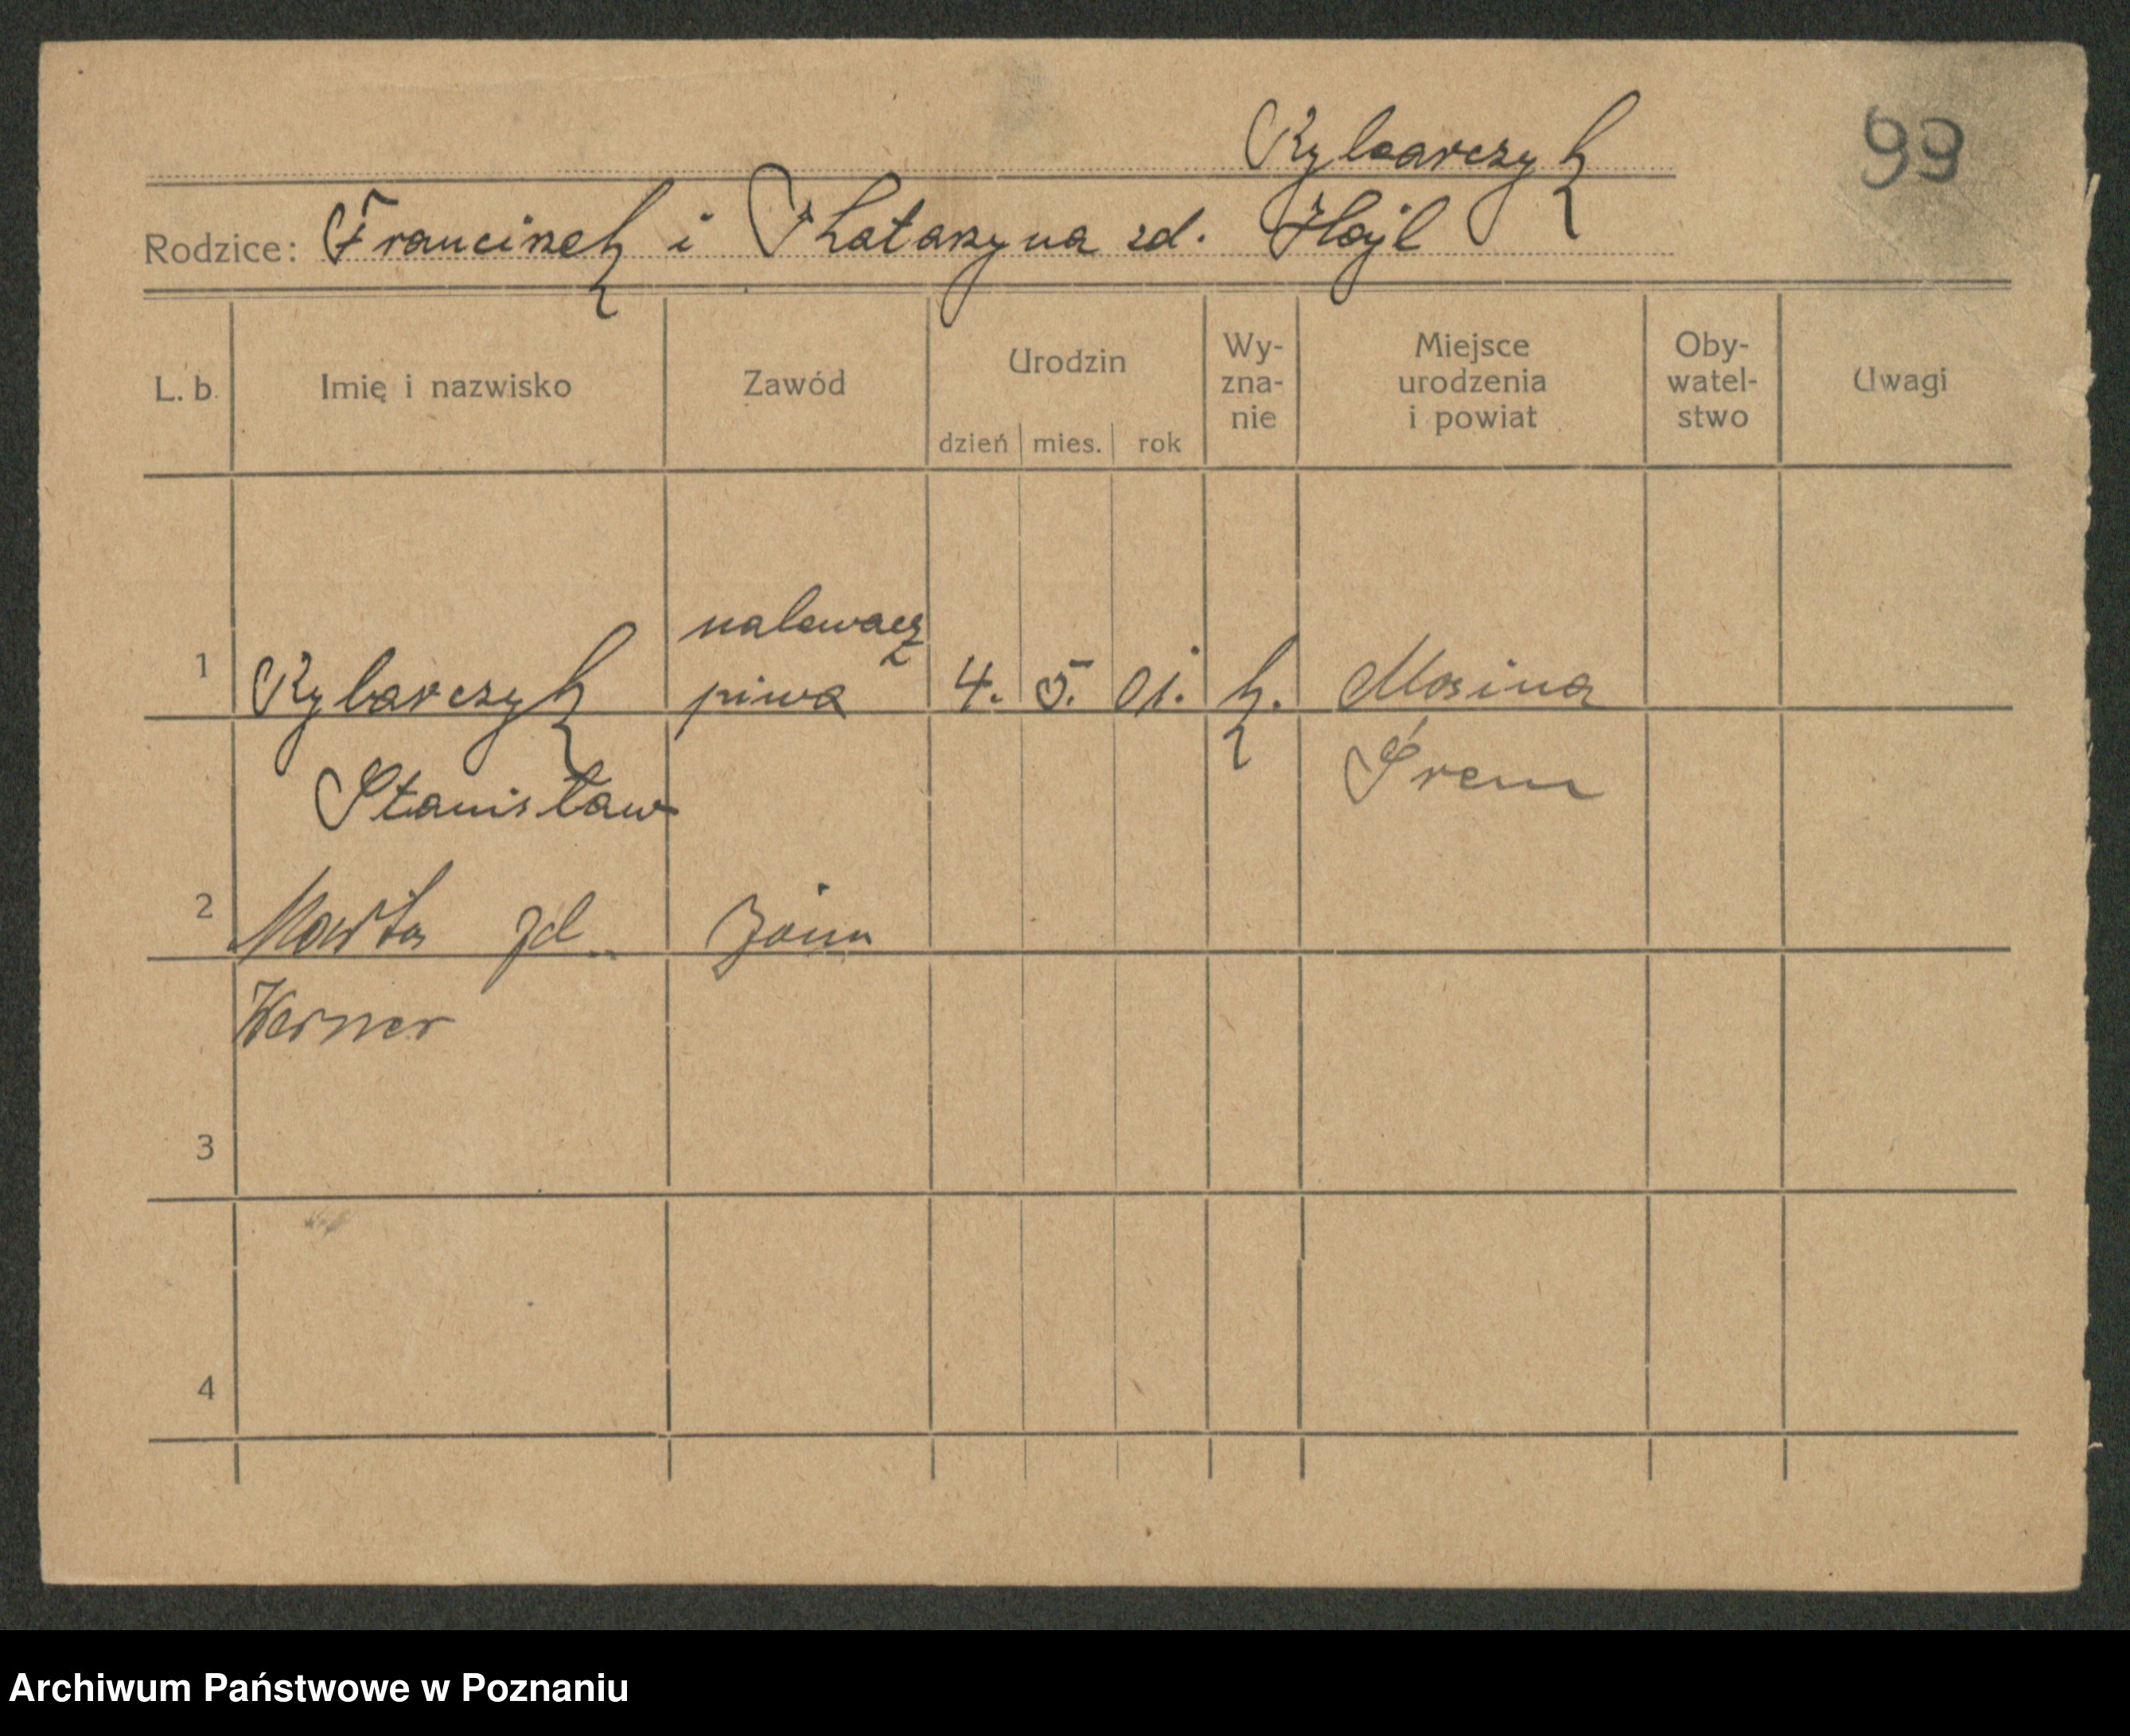 Rybarczyk
99
Rodzice: Franciszek i Katarzyna zd. Hajl
L. b. Imię i nazwisko Zawód Urodzin dzień mies. rok Wy-zna-nie Miejsce urodzenia i powiat Oby-watel-stwo Uwagi
nalewacz
1 Rybarczyk piwa 4. 5. 01. k. Mosina
Stanisław Śrem
2 Marta zd. żona
Werner
3
4
Archiwum Państwowe w Poznaniu